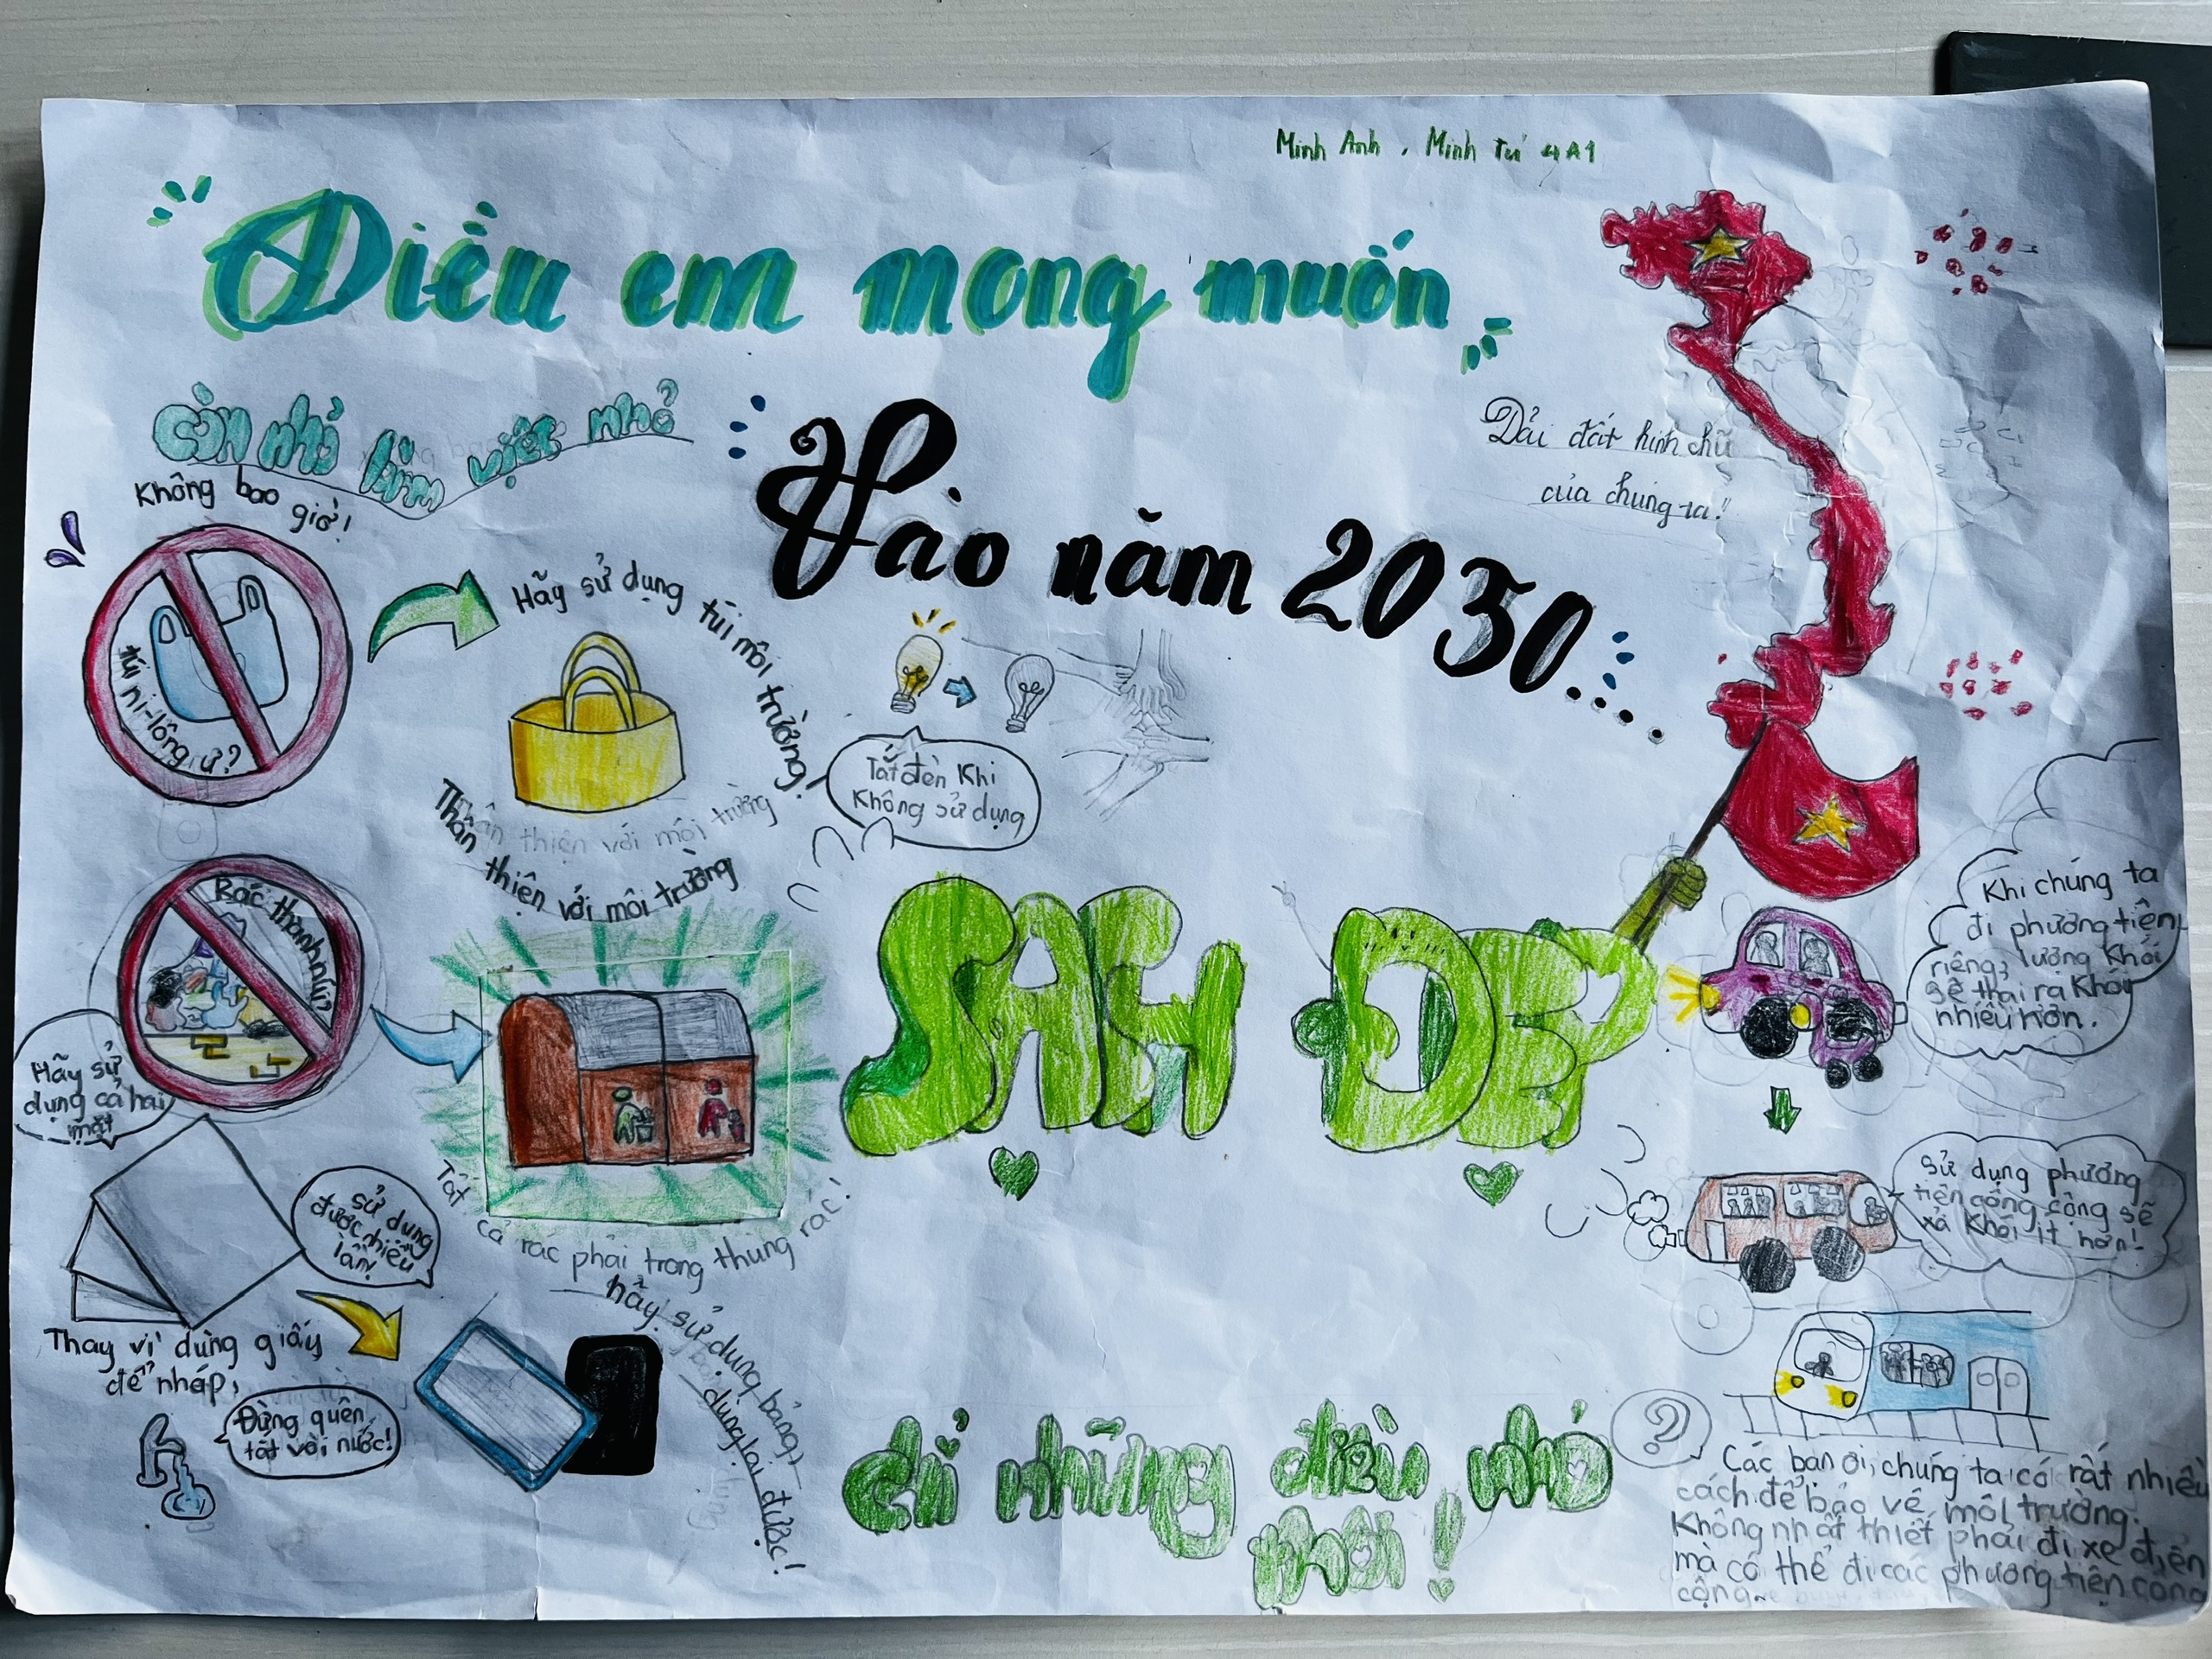 Minh Anh, Minh Tú 4A1
Điều em mong muốn
Vào năm 2050....
Còn nhỏ làm việc nhỏ
Không bao giờ!
túi ni-lông ư?
Hãy sử dụng túi môi trường!
Thân thiện với môi trường
Thân thiện với môi trường
Tắt đèn khi
không sử dụng
Dải đất hình chữ
của chúng ta!
Bác thành
Hãy sử
dụng cả hai
mặt
sử dụng
được nhiều
lần!
Tất cả rác phải trong thùng rác!
Thay vì dùng giấy
để nháp,
hãy sử dụng bảng,
dùng lại được!
Đừng quên
tắt vòi nước!
SẠCH ĐẸP
Khi chúng ta
đi phương tiện
riêng, lượng khói
sẽ thải ra khói
nhiều hơn.
Sử dụng phương
tiện công cộng sẽ
xả khói ít hơn!
?
Các bạn ơi, chúng ta có rất nhiều
cách để bảo vệ môi trường.
Không nhất thiết phải đi xe điện
mà có thể đi các phương tiện công
cộng
chỉ những điều nhỏ
thôi!